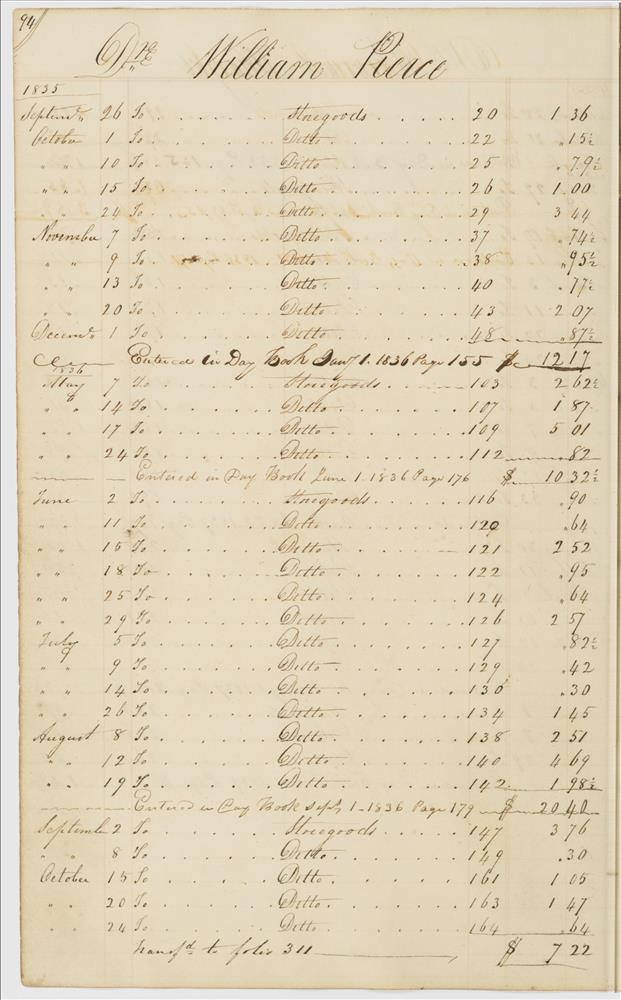 94
Dr William Pierce
1835
Septemr 26 To . . . . . . Storegoods . . . . . 20 1 36
October 1 To . . . . . . Ditto . . . . . . . 22 " 15½
" " 10 To . . . . . . Ditto . . . . . . . 25 " 79½
" " 15 To . . . . . . Ditto . . . . . . . 26 1 00
" " 24 To . . . . . . Ditto . . . . . . . 29 3 44
November 7 To . . . . . . Ditto . . . . . . . 37 " 74½
" " 9 To . . . . . . Ditto . . . . . . . 38 " 95½
" " 13 To . . . . . . Ditto . . . . . . . 40 " 77½
" " 20 To . . . . . . Ditto . . . . . . . 43 2 07
Decemr 1 To . . . . . . Ditto . . . . . . . 48 " 87½
Entered in Day Book Jany 1. 1836 Page 155 $ 12 17
1836
May 7 To . . . . . . Storegoods . . . . . 103 2 62½
" " 14 To . . . . . . Ditto . . . . . . . 107 1 87
" " 17 To . . . . . . Ditto . . . . . . . 109 5 01
" " 24 To . . . . . . Ditto . . . . . . . 112 " 82
Entered in Day Book June 1 - 1836 Page 176 $ 10 32½
June 2 To . . . . . . Storegoods . . . . . 116 " 90
" " 11 To . . . . . . Ditto . . . . . . . 120 " 64
" " 15 To . . . . . . Ditto . . . . . . . 121 2 52
" " 18 To . . . . . . Ditto . . . . . . . 122 " 95
" " 25 To . . . . . . Ditto . . . . . . . 124 " 64
" " 29 To . . . . . . Ditto . . . . . . . 126 2 57
July 5 To . . . . . . Ditto . . . . . . . 127 " 82½
" " 9 To . . . . . . Ditto . . . . . . . 129 " 42
" " 14 To . . . . . . Ditto . . . . . . . 130 " 30
" " 26 To . . . . . . Ditto . . . . . . . 134 1 45
August 8 To . . . . . . Ditto . . . . . . . 138 2 51
" " 12 To . . . . . . Ditto . . . . . . . 140 4 69
" " 19 To . . . . . . Ditto . . . . . . . 142 1 98½
Entered in Day Book Sept 1 - 1836 Page 179 $ 20 40
September 2 To . . . . . . Storegoods . . . . . 147 3 76
" " 8 To . . . . . . Ditto . . . . . . . 149 " 30
October 15 To . . . . . . Ditto . . . . . . . 161 1 05
" " 20 To . . . . . . Ditto . . . . . . . 163 1 47
" " 24 To . . . . . . Ditto . . . . . . . 164 " 64
Transfd to folio 311 $ 7 22